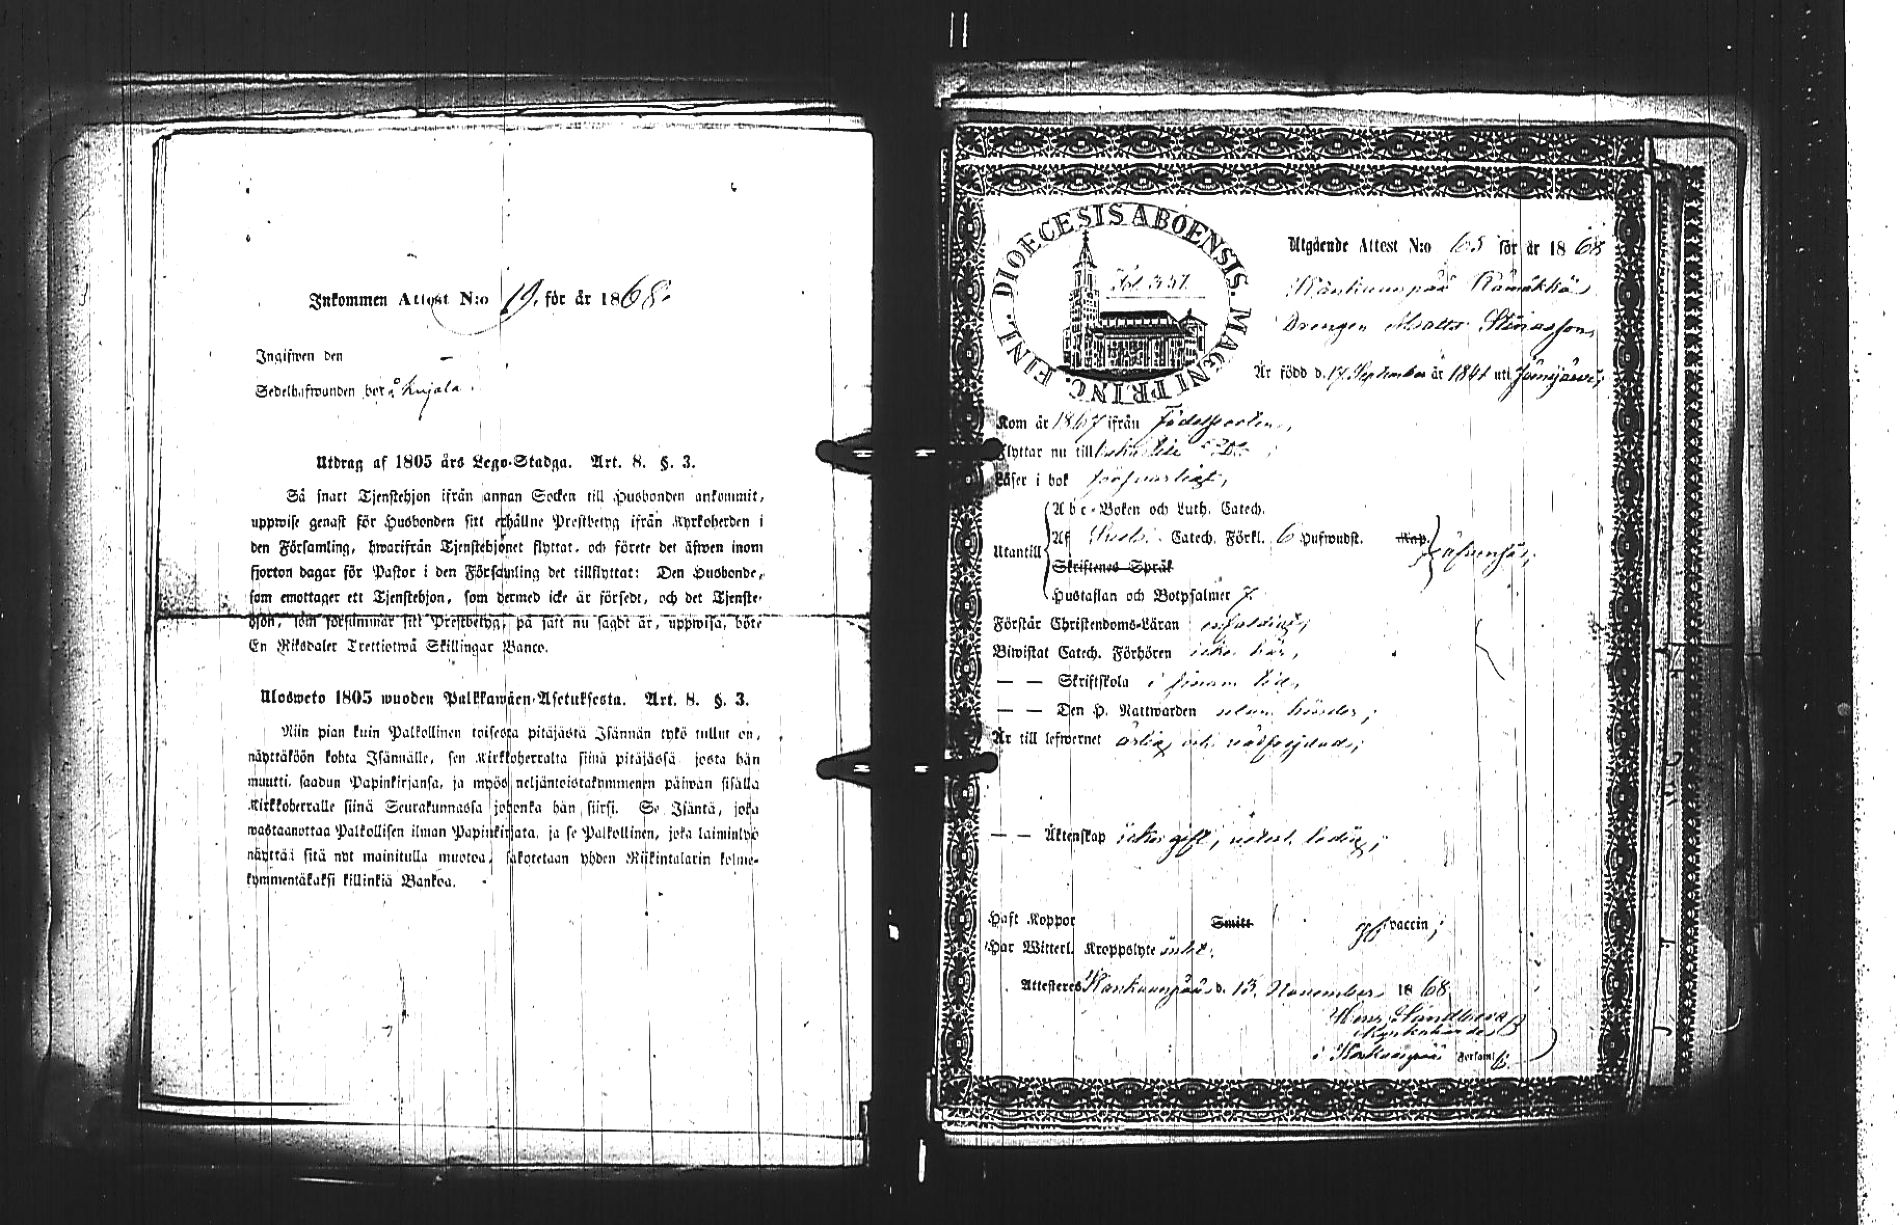 Inkommen Attest N:o 19. för år 1868.
Ingifwen den –
Sedelhafwanden bor å Kujala.
Utdrag af 1805 års Lego-Stadga. Art. 8. §. 3.
Så snart Tjenstehjon ifrån annan Socken till Husbonden ankommit,
uppwise genast för Husbonden sitt erhållne Prestbetyg ifrån Kyrkoherden i
den Församling, hwarifrån Tjenstehjonet flyttat, och förete det äfwen inom
fjorton dagar för Pastor i den Församling det tillflyttat: Den Husbonde,
som emottager ett Tjenstehjon, som dermed icke är försedt, och det Tjenste-
hjon, som försummar sitt Prestbetyg, på sätt nu sagdt är, uppwisa, böte
En Riksdaler Trettiotwå Skillingar Banco.
Ulosweto 1805 wuoden Palkkawäen-Asetuksesta. Art. 8. §. 3.
Niin pian kuin Palkollinen toisesta pitäjästä Isännän tykö tullut on,
näyttäköön kohta Isännälle, sen Kirkkoherralta siinä pitäjässä josta hän
muutti, saadun Papinkirjansa, ja myös neljäntoistakymmenen päiwän sisällä
Kirkkoherralle siinä Seurakunnassa johonka hän siirsi. Se Isäntä, joka
wastaanottaa Palkollisen ilman Papinkirjata, ja se Palkollinen, joka laiminlyö
näyttää sitä nyt mainitulla muotoa, sakotetaan yhden Riikintalarin kolme-
kymmentäkaksi killinkiä Bankoa.
DIOECESIS ABOENSIS. MAGNI PRINC. FINL.
Fol. 351.
Utgående Attest N:o 65 för år 1868
Kankaanpää
Drengen Matts
Är född d. 17 September år 1841 uti Jämijärvi,
Kom år 1867 ifrån födelseorten,
Flyttar nu till
Läser i bok försvarligt,
Abc-Boken och Luth. Catech.
Utantill Af Catech. Förkl. 6 Hufwudst. Kap.
Skriftenes Språk
Hustaflan och Botpsalmer 7.
Förstår Christendoms-Läran enfaldigt,
Biwistat Catech. Förhören icke här,
— — Skriftskola i sinom tid,
— — Den H. Nattwarden utan hinder,
Är till lefwernet ärlig och
— — Äktenskap icke gift, ledig,
Haft Koppor Smitt vaccin,
Har Witterl. Kroppslyte intet.
Attesteras Kankaanpää d. 13. November 1868
Kyrkoherde
i Kankaanpää Förs:aml.